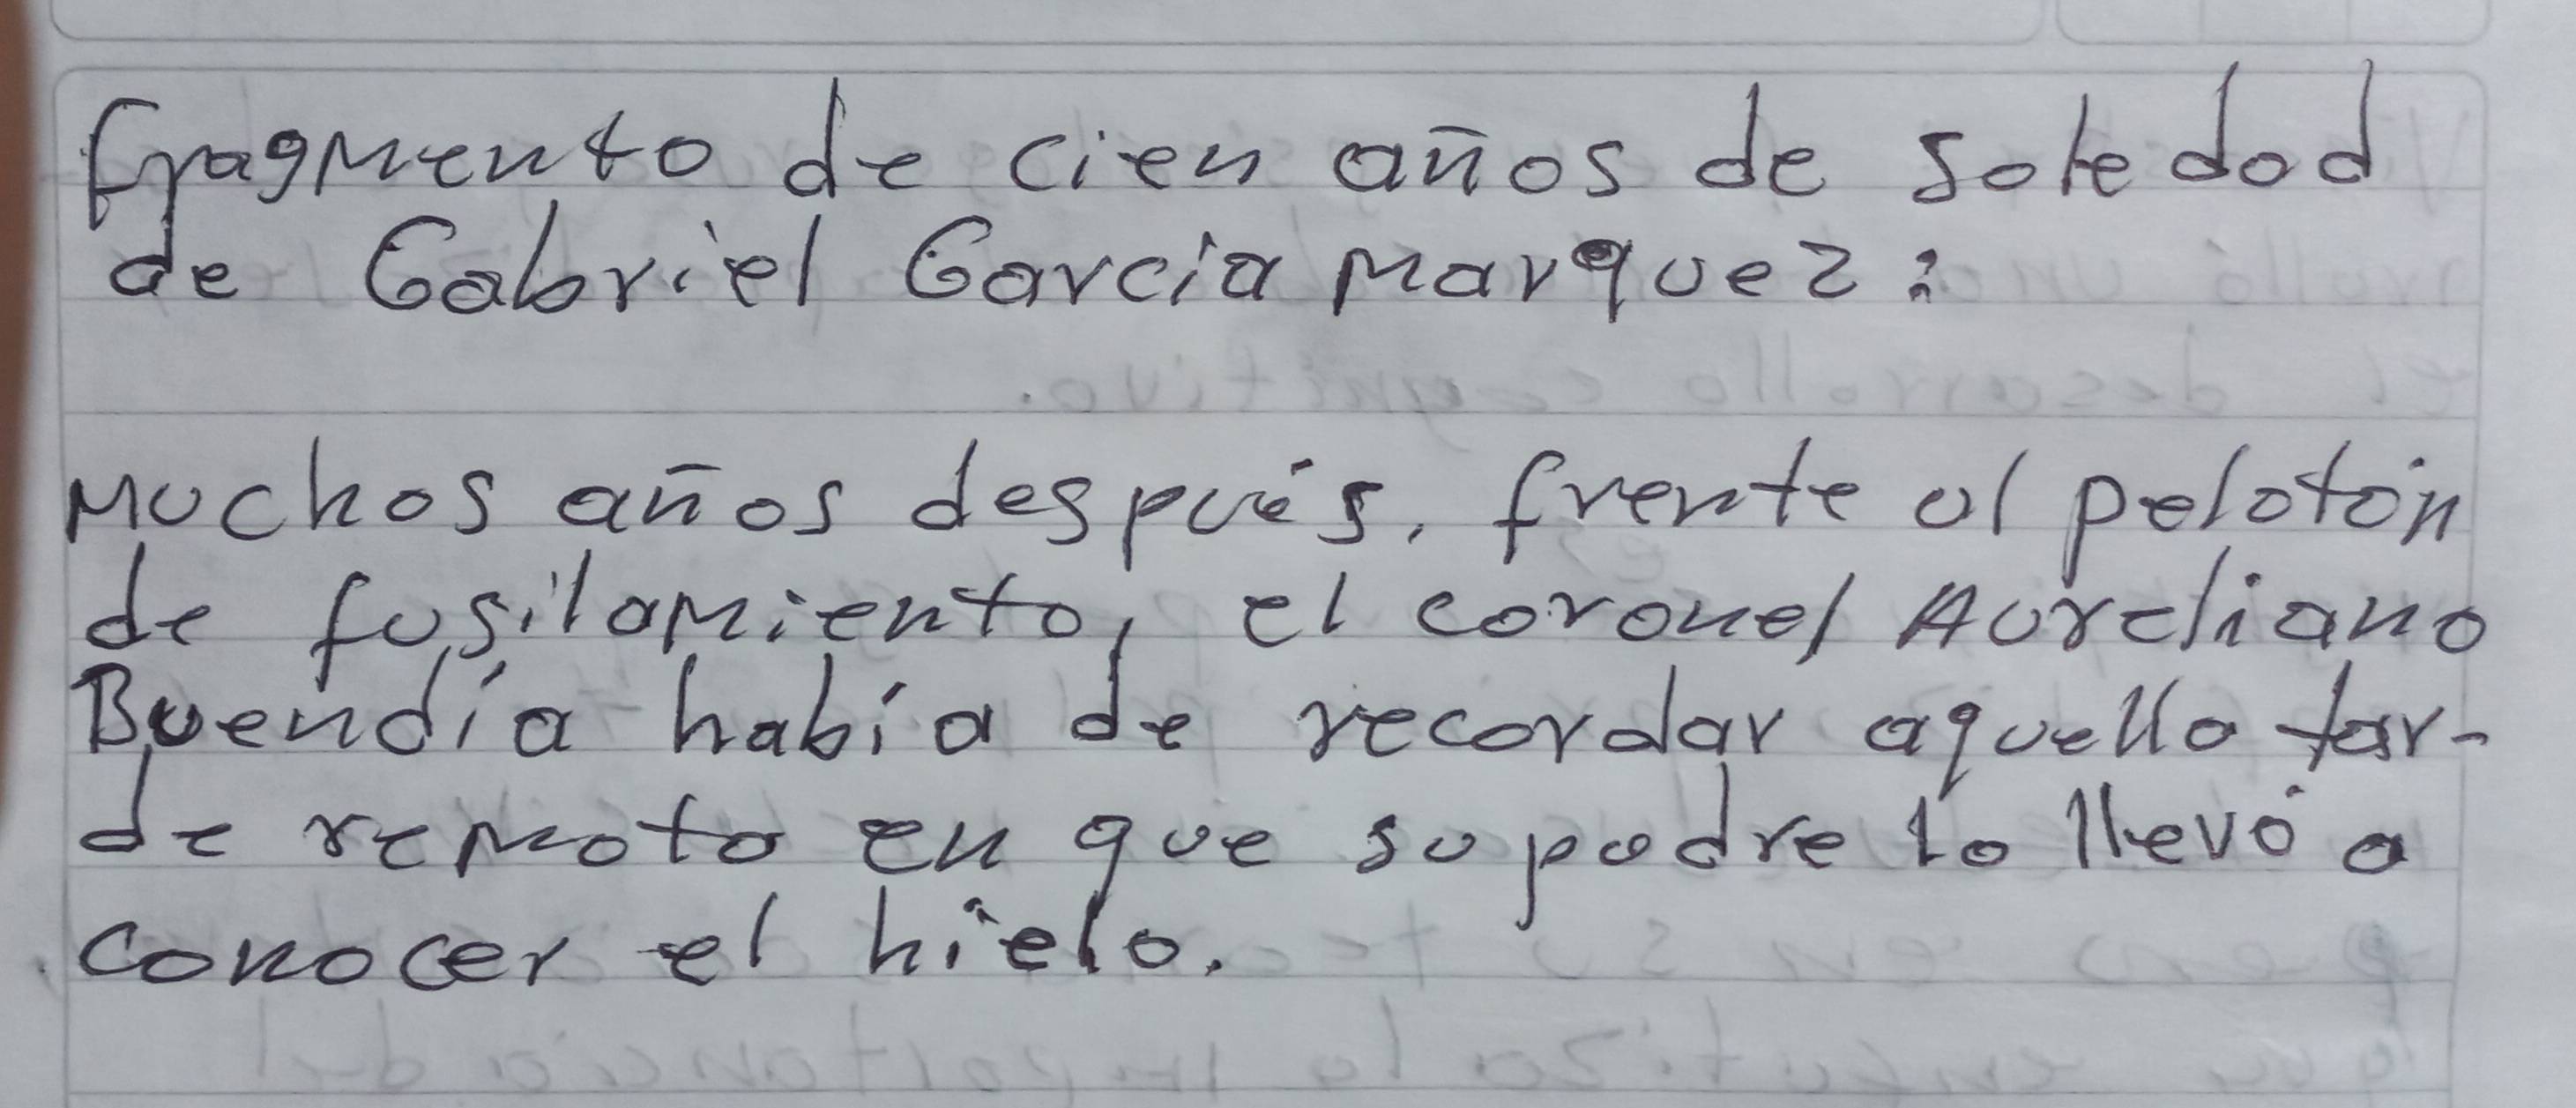 fragmento de cien años de soledad
de Gabriel García Marquez:
Muchos años después, frente al pelotón
de fusilamiento, el coronel Aureliano
Buendía había de recordar aquella tar-
de remota en que su padre lo llevó a
conocer el hielo.